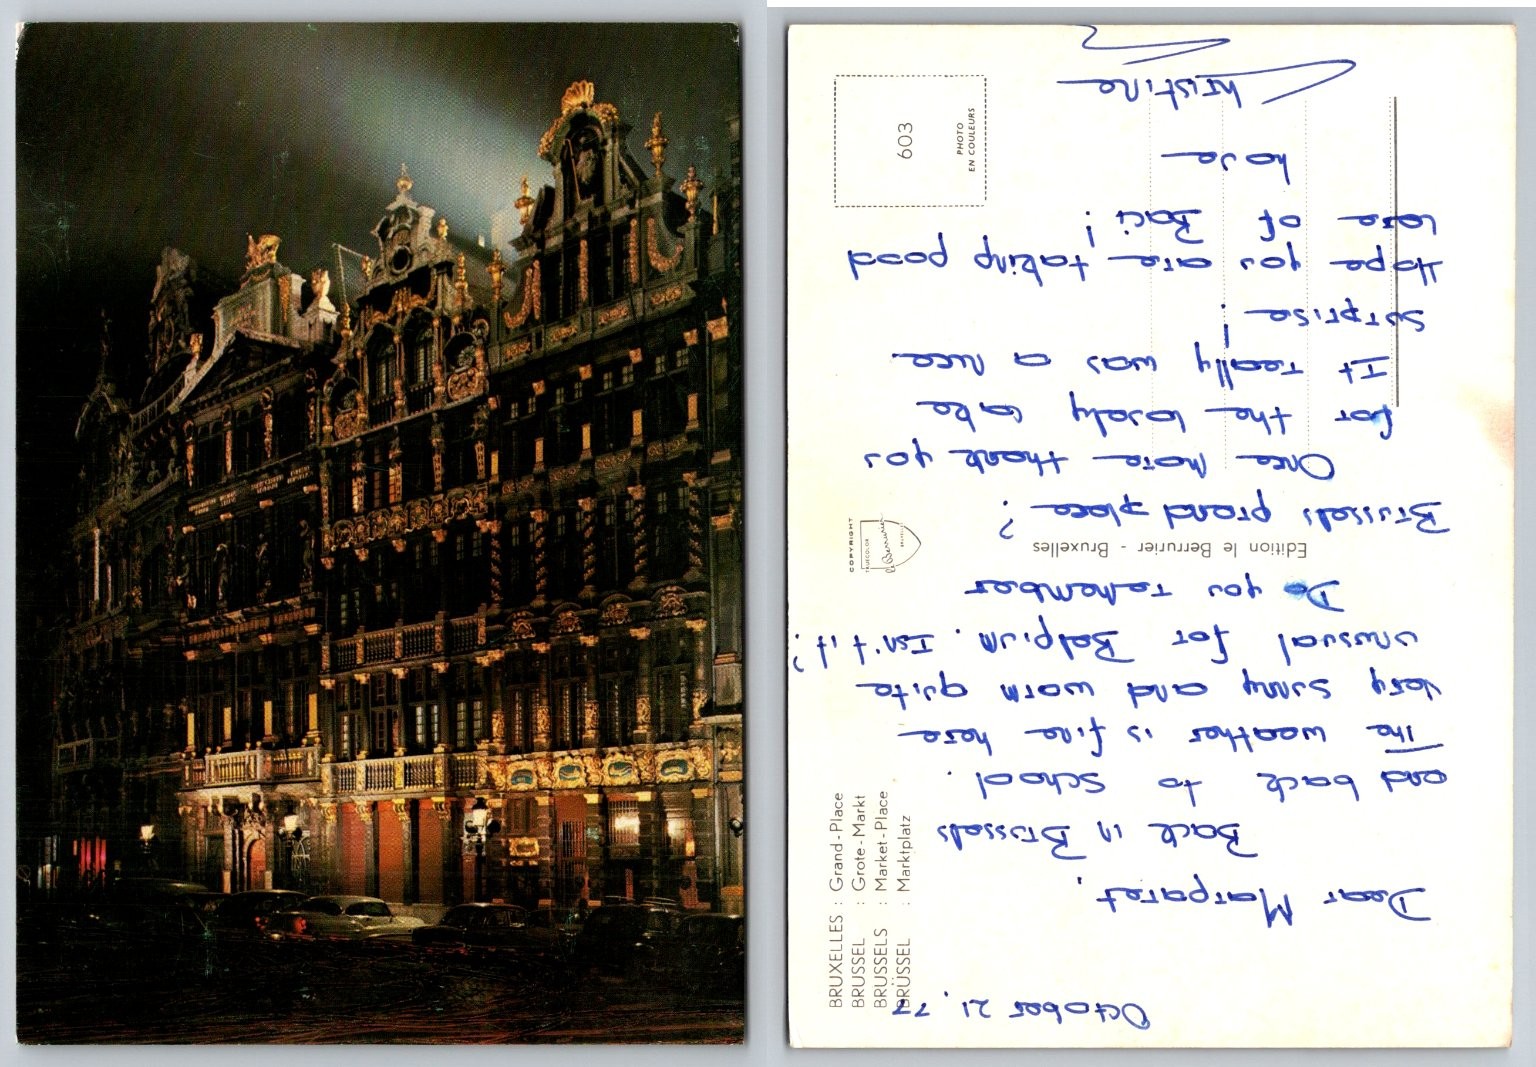 October 21, 77
Dear Margaret,
Back in Brussels
and back to school.
The weather is fine here
very sunny and warm quite
unusual for Belgium. Isn't it?
Do you remember
Brussels grand place?
Once more thank you
for the lovely cake
It really was a nice
surprise!
Hope you are taking good
care of Baci!
Love
Christine
BRUXELLES : Grand-Place
BRUSSEL : Grote-Markt
BRUSSELS : Market-Place
BRÜSSEL : Marktplatz
Edition le Berrurier - Bruxelles
COPYRIGHT
TRUECOLOR
le Berrurier
BRUXELLES
603
PHOTO
EN COULEURS